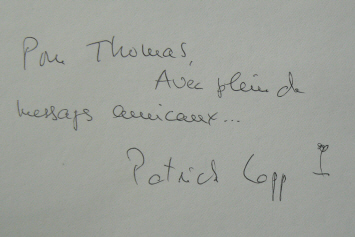 Pour Thomas,
Avec plein de
messages amicaux...
Patrick Copp